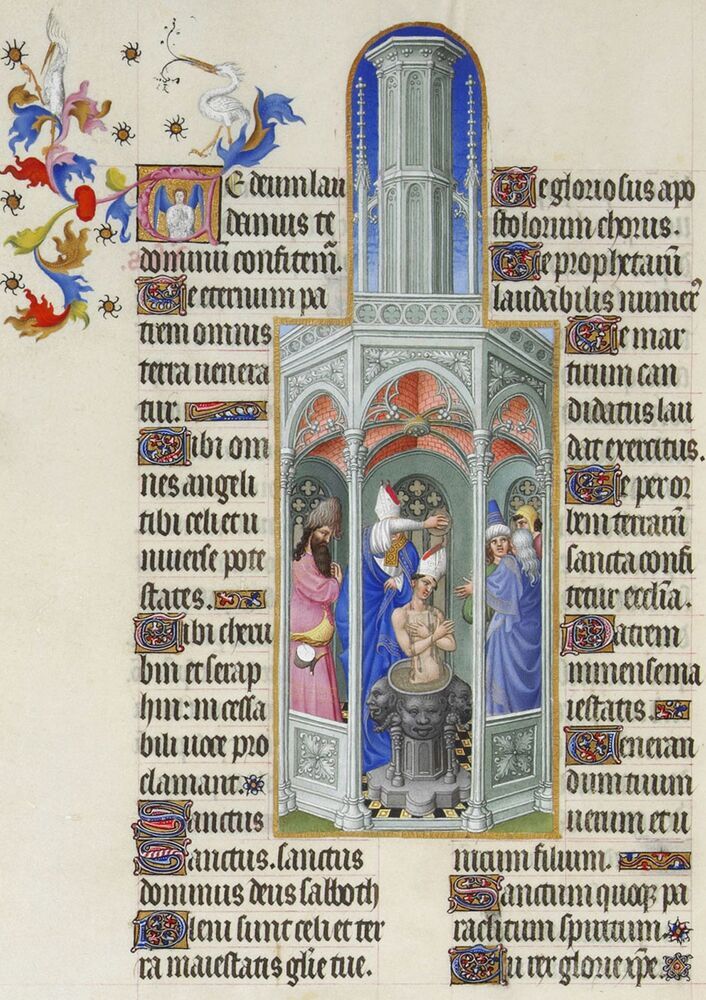 Te deum lau
damus te
dominum confitem̄.
Te eternum pa
trem omnis
terra uenera
tur.
Tibi om
nes angeli
tibi celi et u
niuerse pote
states.
Tibi cheru
bin et serap
hin: in cessa
bili uoce pro
clamant.
Sanctus
Sanctus. sanctus
dominus deus sabboth
Pleni sunt celi et ter
ra maiestatis gl̄ie tue.
Te gloriosus apo
stolorum chorus.
Te prophetarū
laudabilis numerꝰ
Te mar
tirum can
didatus lau
dat exercitus.
Te per or
bem terrarū
sancta confi
tetur eccl̄ia.
Patrem
inmense ma
iestatis.
Veneran
dum tuum
uerum et u
nicum filium.
Sanctum quoqꝫ pa
raclitum spiritum.
Tu rex glorie xp̄e.